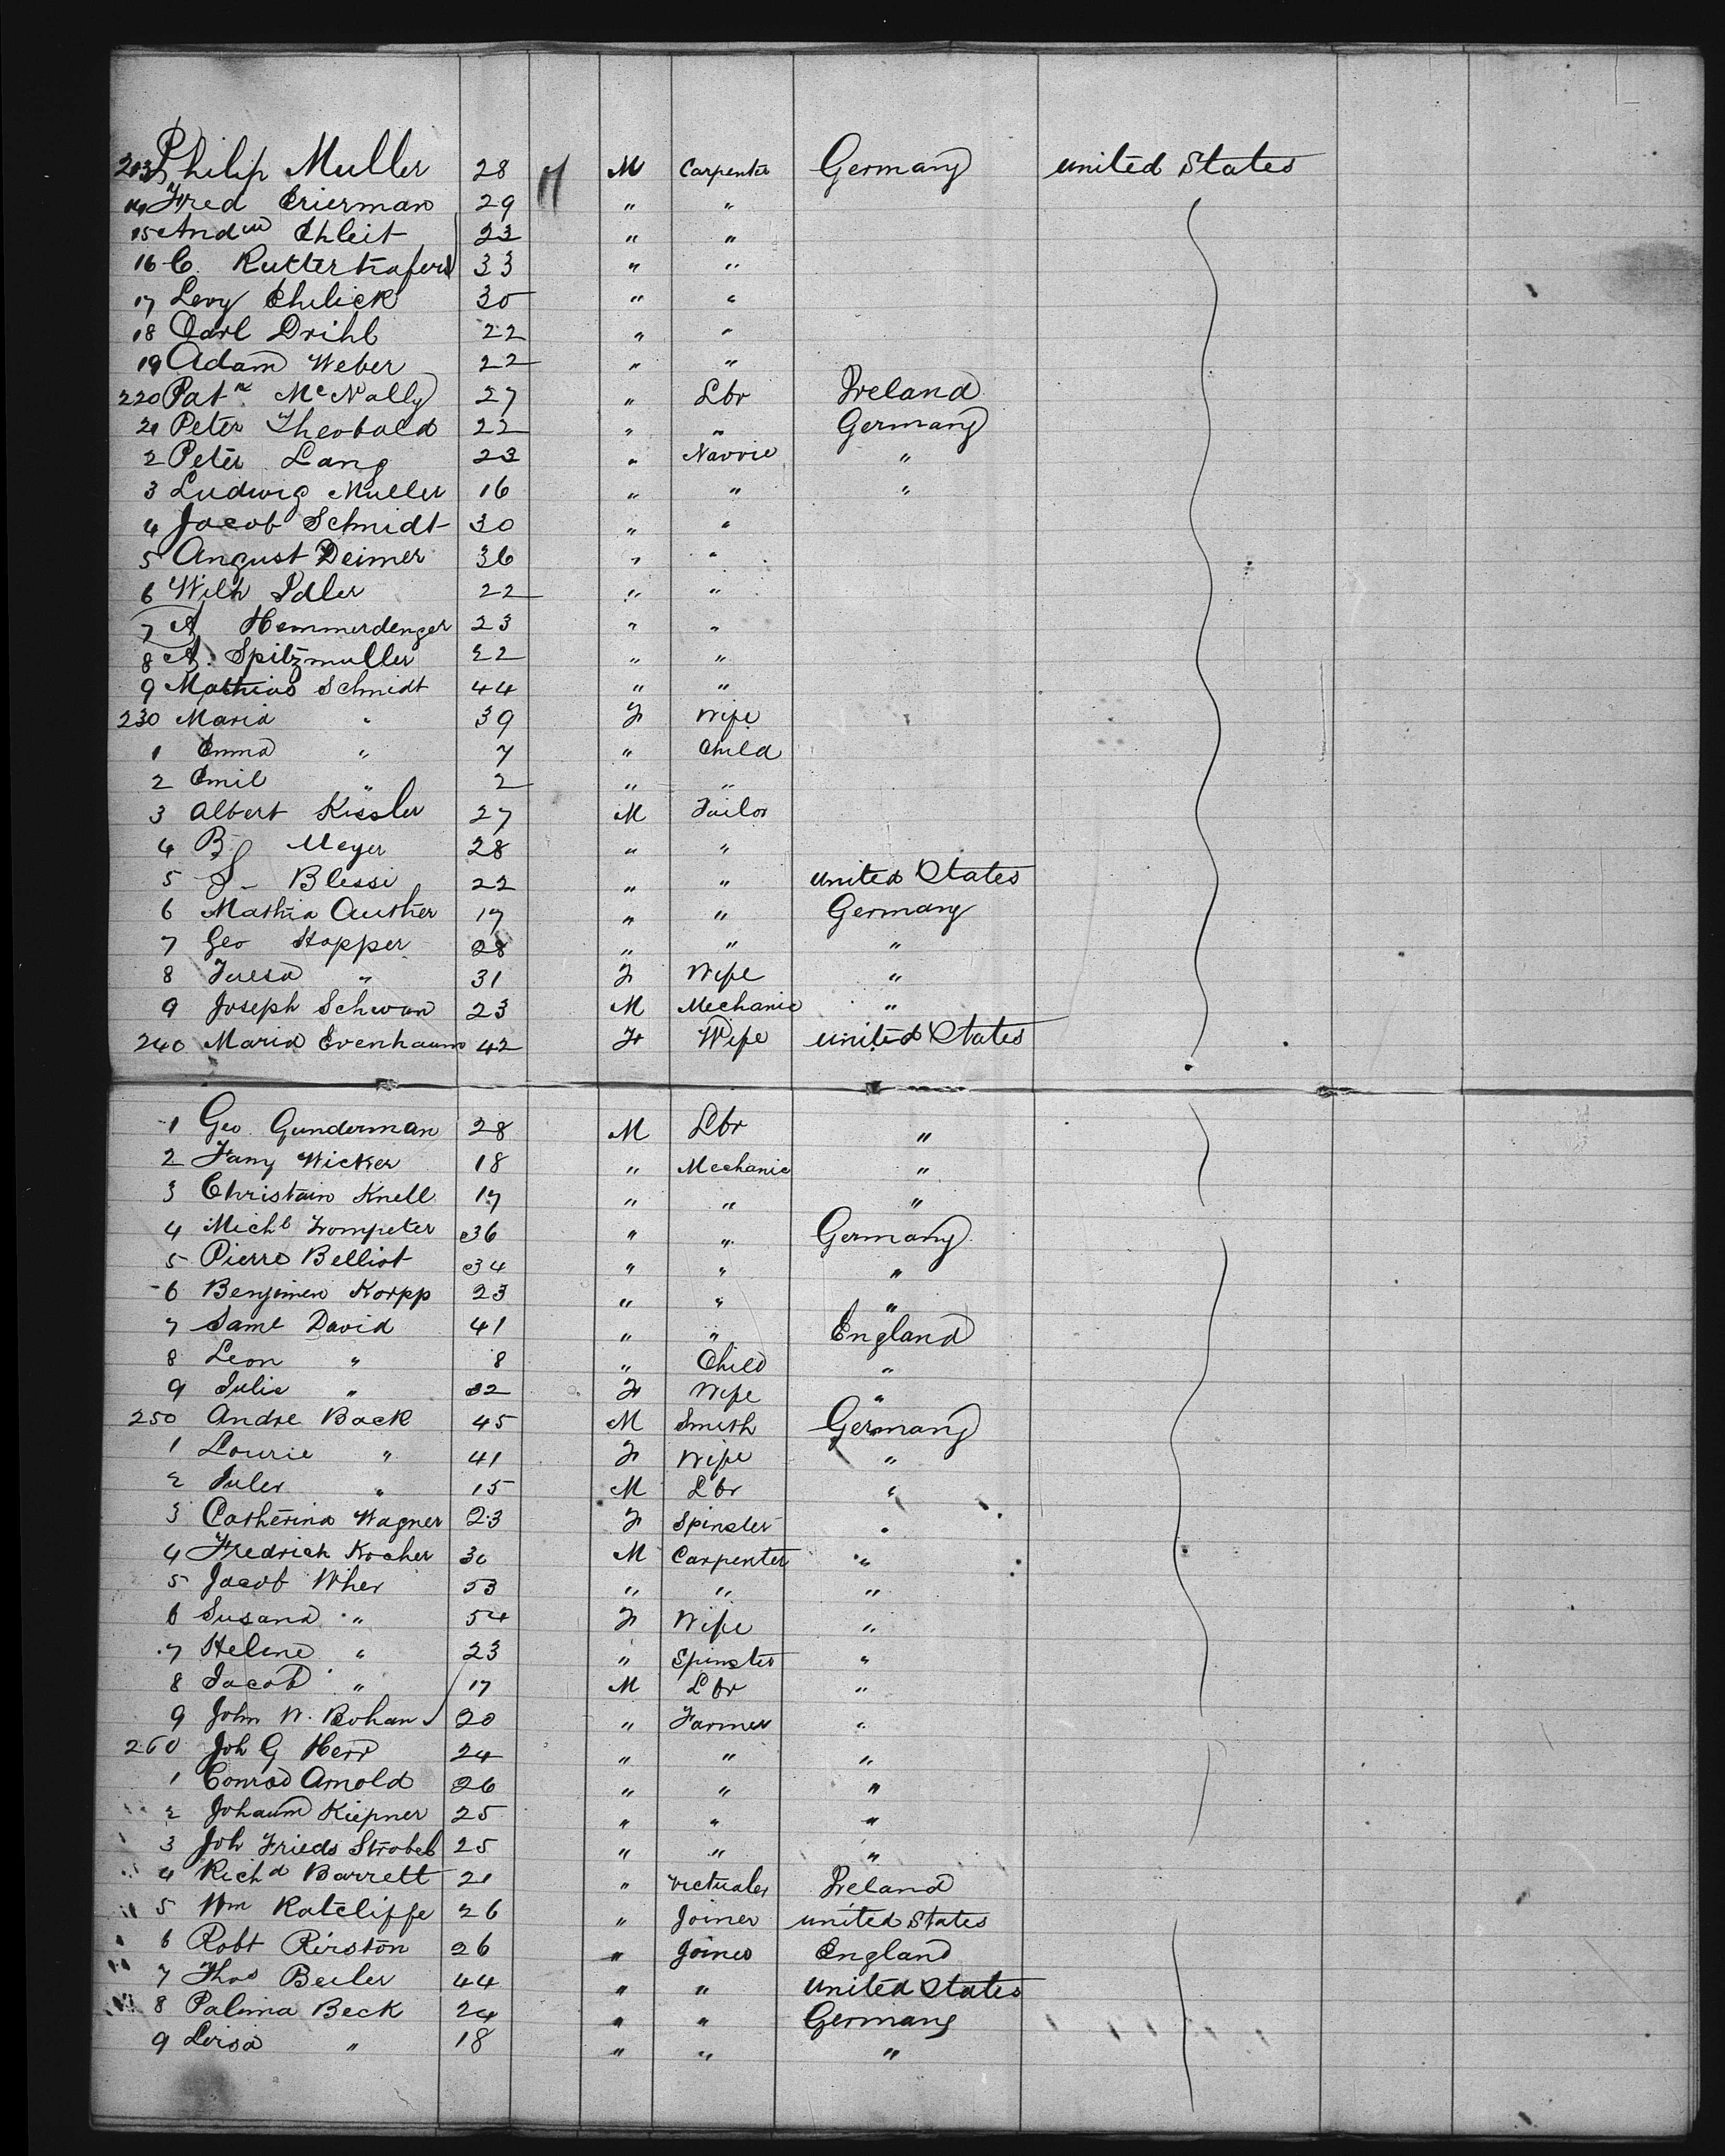 213 Philip Muller 28 M Carpenter Germany United States
14 Fred Crierman 29 " "
15 Andw Ehleit 23 " "
16 C. 33 " "
17 Levy Ehlick 30 " "
18 Carl Drihl 22 " "
19 Adam Weber 22 " "
220 Patk McNally 27 " Lbr Ireland
21 Peter Theobald 22 " " Germany
2 Peter Lang 23 " Navvie "
3 Ludwig Muller 16 " " "
4 Jacob Schmidt 30 " "
5 August Deimer 36 " "
6 Wilh Idler 22 " "
7 A Hemmerdenger 23 " "
8 A. Spitzmuller 22 " "
9 Mathias Schmidt 44 " "
230 Maria " 39 F Wife
1 Emma " 7 " Child
2 Emil " 2 " "
3 Albert Kissler 27 M Tailor
4 B. Meyer 28 " "
5 Blessi 22 " " United States
6 Mathia Outher 17 " " Germany
7 Geo Hopper 28 " " "
8 Teresa " 31 F Wife "
9 Joseph Schwan 23 M Mechanic "
240 Maria Evenhaum 42 F Wife United States
1 Geo. Gunderman 28 M Lbr "
2 Fany Wicker 18 " Mechanic "
3 Christain Knell 17 " " "
4 Michl Trompeter 36 " " Germany
5 Pierre Belliot 34 " " "
6 Benjimen Korpp 23 " " "
7 Saml David 41 " " England
8 Leon " 8 " Child "
9 Julie " 32 F Wife "
250 Andre Back 45 M Smith Germany
1 Lourie " 41 F Wife "
2 Jules " 15 M Lbr "
3 Catherina Wagner 23 F Spinster "
4 Fredrich Kocher 30 M Carpenter "
5 Jacob Wher 53 " " "
6 Susana " 54 F Wife "
7 Helene " 23 " Spinster "
8 Jacob " 17 M Lbr "
9 John W. Bohan 20 " Farmer "
260 Joh G Herr 24 " " "
1 Conrad Arnold 26 " " "
2 Johaum Kiepner 25 " " "
3 Joh Frieds Strobel 25 " " "
4 Richd Barrett 21 " Victualer Ireland
5 Wm Ratcliffe 26 " Joiner United States
6 Robt Rirston 26 " Joiner England
7 Thos Beiler 44 " " United States
8 Palima Beck 24 " " Germany
9 Lersa " 18 " " "